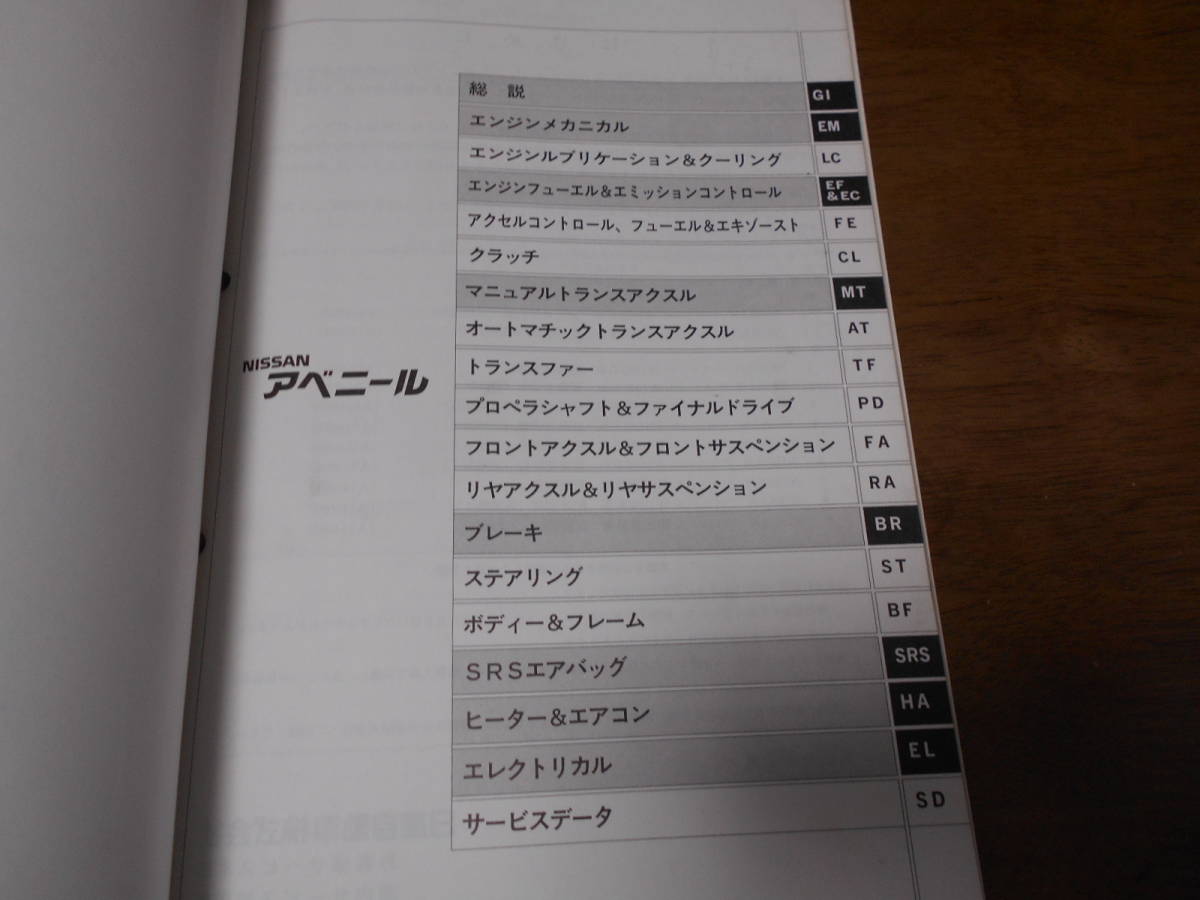 NISSAN
アベニール
総 説 GI
エンジンメカニカル EM
エンジンルブリケーション&クーリング LC
エンジンフューエル&エミッションコントロール EF & EC
アクセルコントロール、フューエル&エキゾースト FE
クラッチ CL
マニュアルトランスアクスル MT
オートマチックトランスアクスル AT
トランスファー TF
プロペラシャフト&ファイナルドライブ PD
フロントアクスル&フロントサスペンション FA
リヤアクスル&リヤサスペンション RA
ブレーキ BR
ステアリング ST
ボディー&フレーム BF
SRSエアバッグ SRS
ヒーター&エアコン HA
エレクトリカル EL
サービスデータ SD